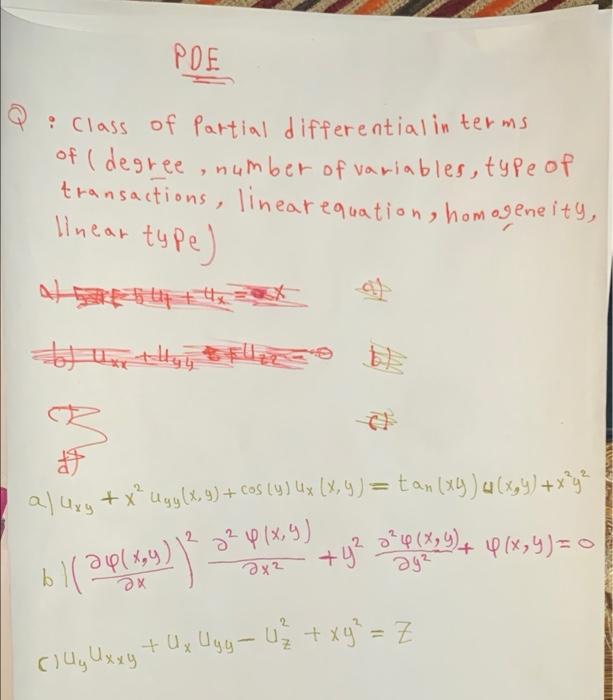 PDE
Q : class of Partial differential in terms
of (degree, number of variables, type of
transactions, linear equation, homogeneity,
linear type)
a)
b) Uxx + Uyy + Uzz = 0 b)
c)
d)
a) Uxy + x² Uyy(x,y) + cos(y) Ux (x,y) = tan(xy) u(x,y) + x²y²
b) (∂φ(x,y)/∂x)² ∂²φ(x,y)/∂x² + y² ∂²φ(x,y)/∂y² + φ(x,y) = 0
c) Uy Uxxy + Ux Uyy - Uz² + xy² = Z